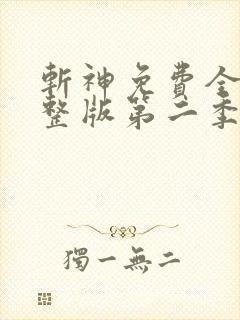 斬神免費全
整版第二季
獨一無二